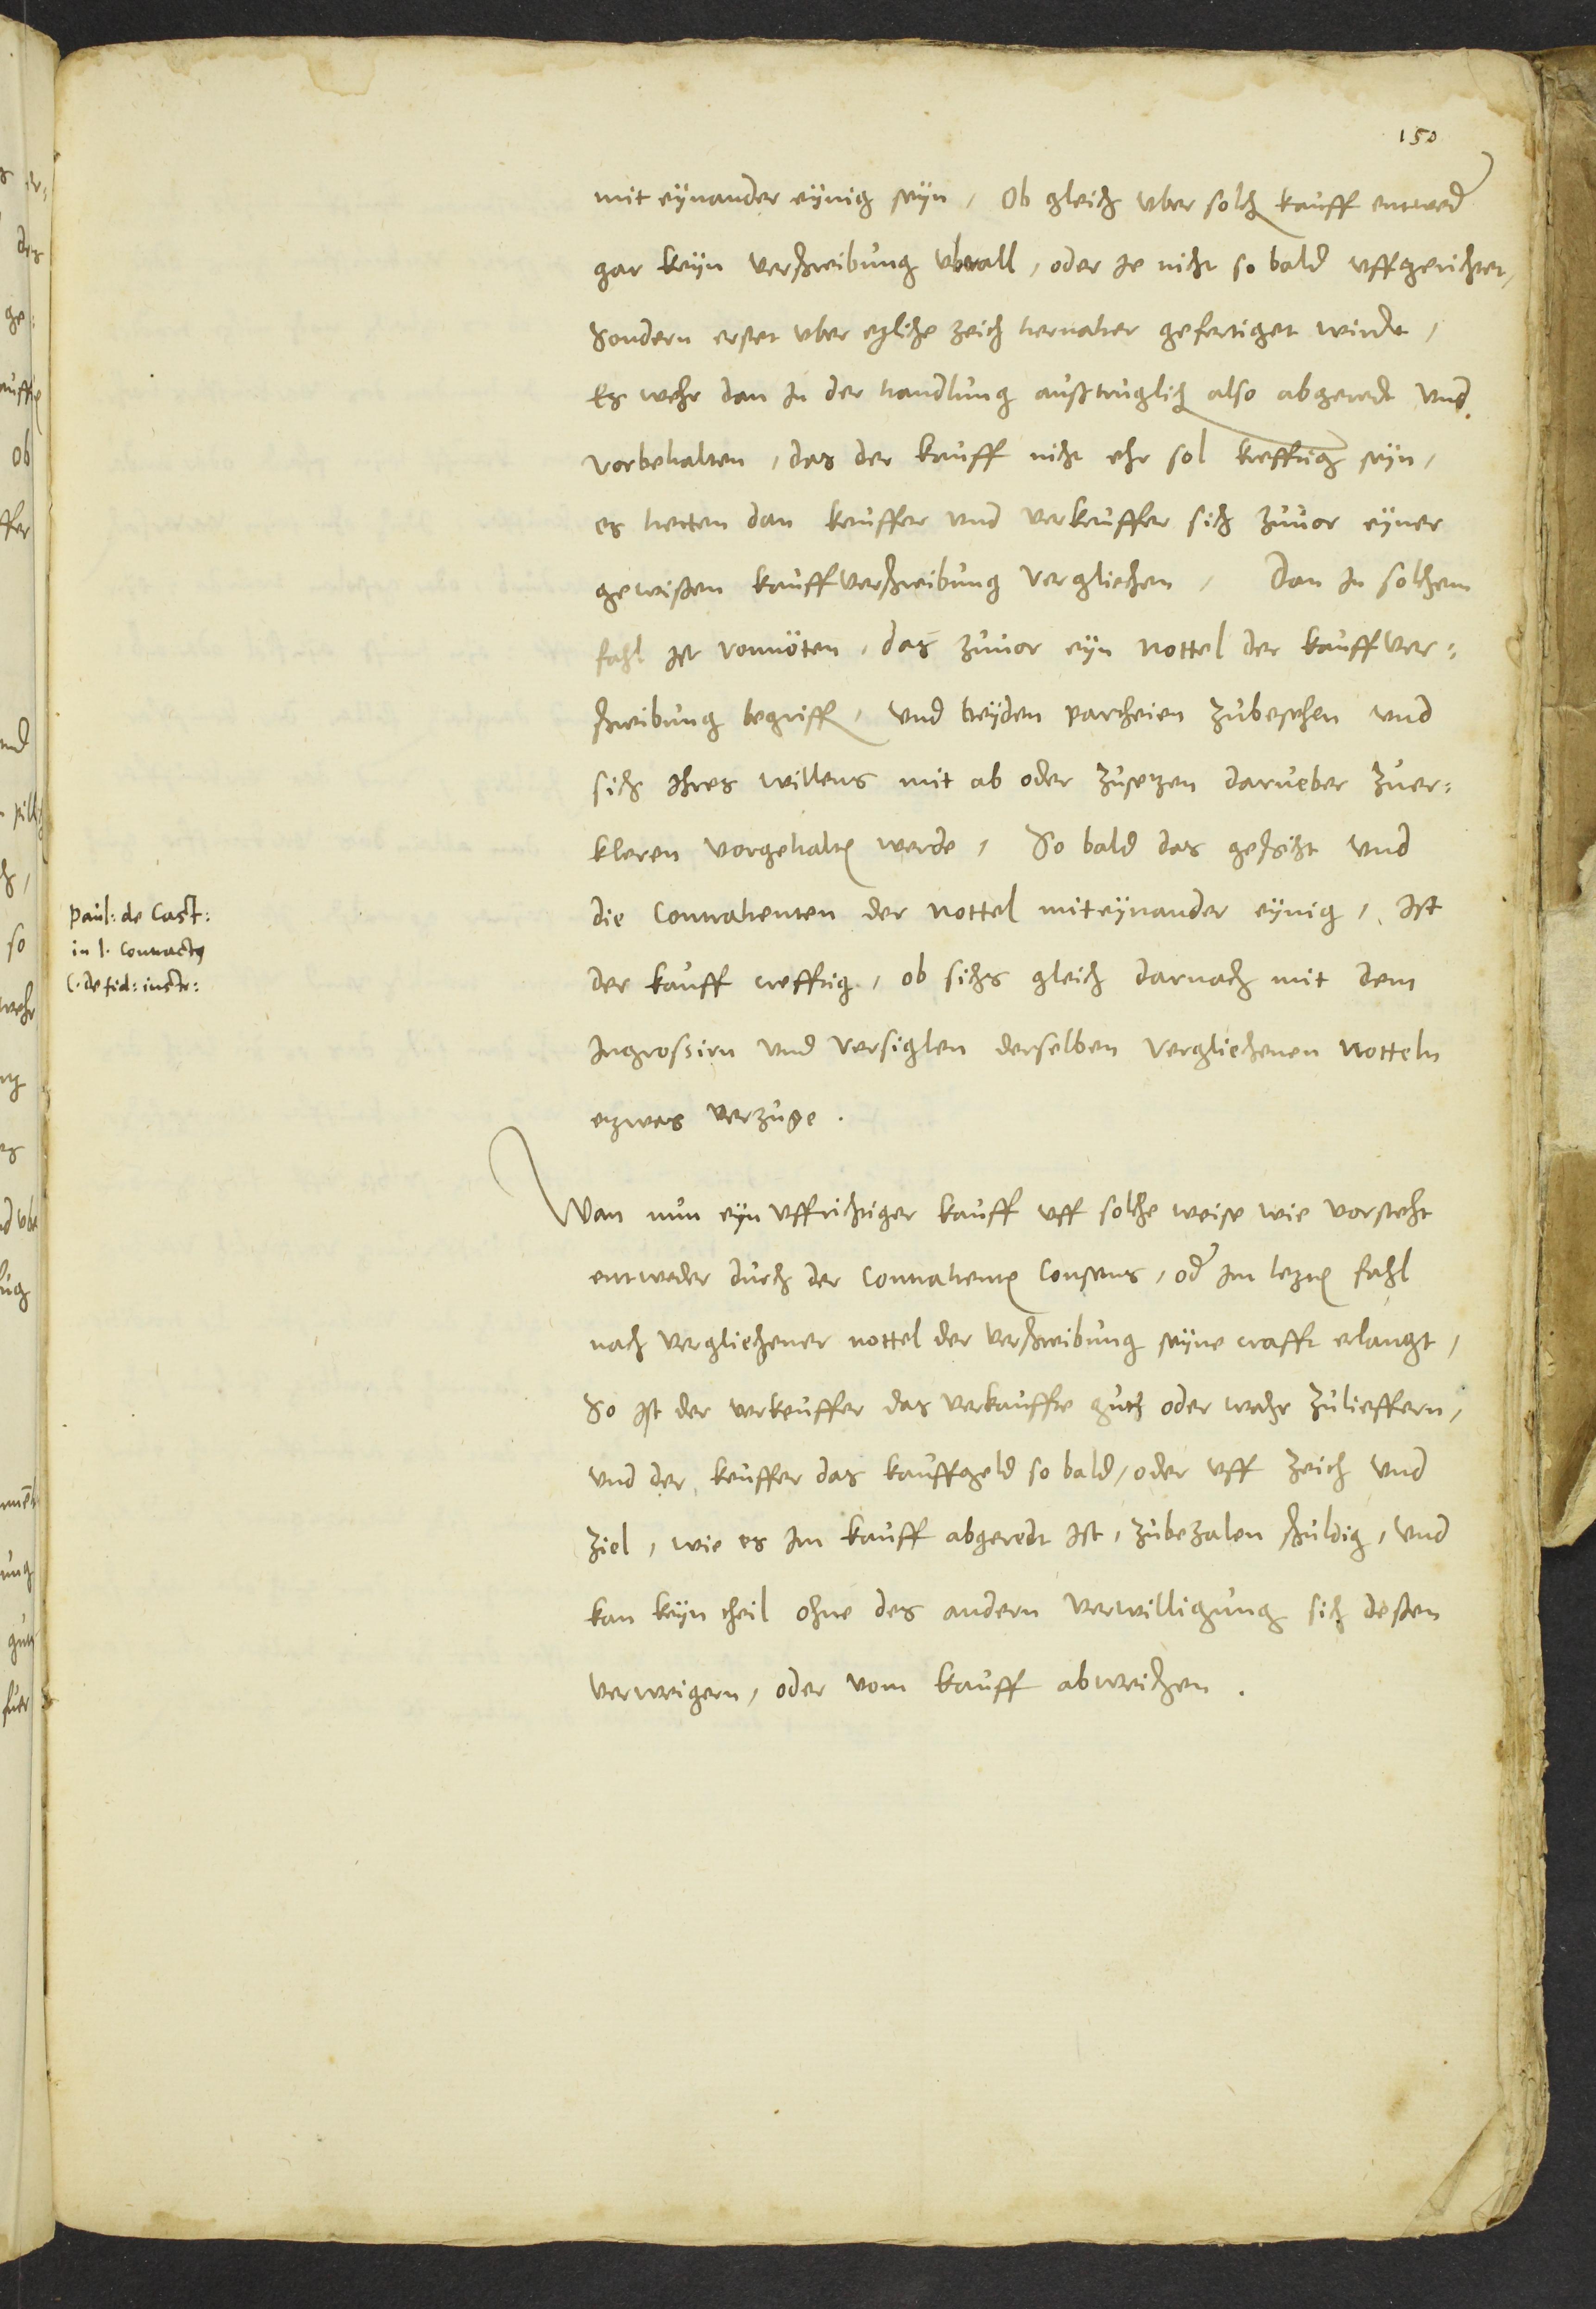 150
mit eÿnander eÿnig seÿn, Ob gleich vber solch kauff entwed
gar keÿn verschreibung vberall, oder Je nicht so bald vffgerichtet,
Sondern erster vber etzliche zeith hernaher gefertiget wirdt,
Es wehr dan In der handlung außtruglich also abgeredt vnd
vorbehalten, das der kauff nicht ehr sol krefftig seÿn,
es hetten dan keuffer vnd verkeuffer sich zuuor eÿner
gewißen kauffverschreibung verglichen, Dan In solchem
fahl Ist vonnöten, das zuuor eÿn nottel der kauffver=
schreibung begriff, vnd beÿden partheien zubesehen vnd
sich Ihres willens mit ab oder zusetzen darueber zuer=
kleren vorgehalten werde, So bald das geschicht vnd
die Contrahenten der nottel miteÿnander eÿnig, Ist
der kauff creftig, ob sichs gleich darnach mit dem
Ingrossirn vnd versiglen derselben verglichenen notteln
etzwas verzuge.
Paul: de Cast:
in l. contractus
C. de fid: instr:
Wan nun eÿn vffrichtiger kauff vff solche weise wie vorsteht
entweder durch der Contrahenten Consens, oder Im letzten fahl
nach verglichener nottel der verschreibung seÿne crafft erlangt,
So Ist der verkeuffer das verkauffte guth oder wahr zulieffern,
vnd der keuffer das kauffgeld so bald, oder vff zeith vnd
ziel, wie es Im kauff abgeredt Ist, zubezalen schuldig, vnd
kan keÿn theil ohne des andern verwilligung sich deßen
verweigern, oder vom kauff abweichen.